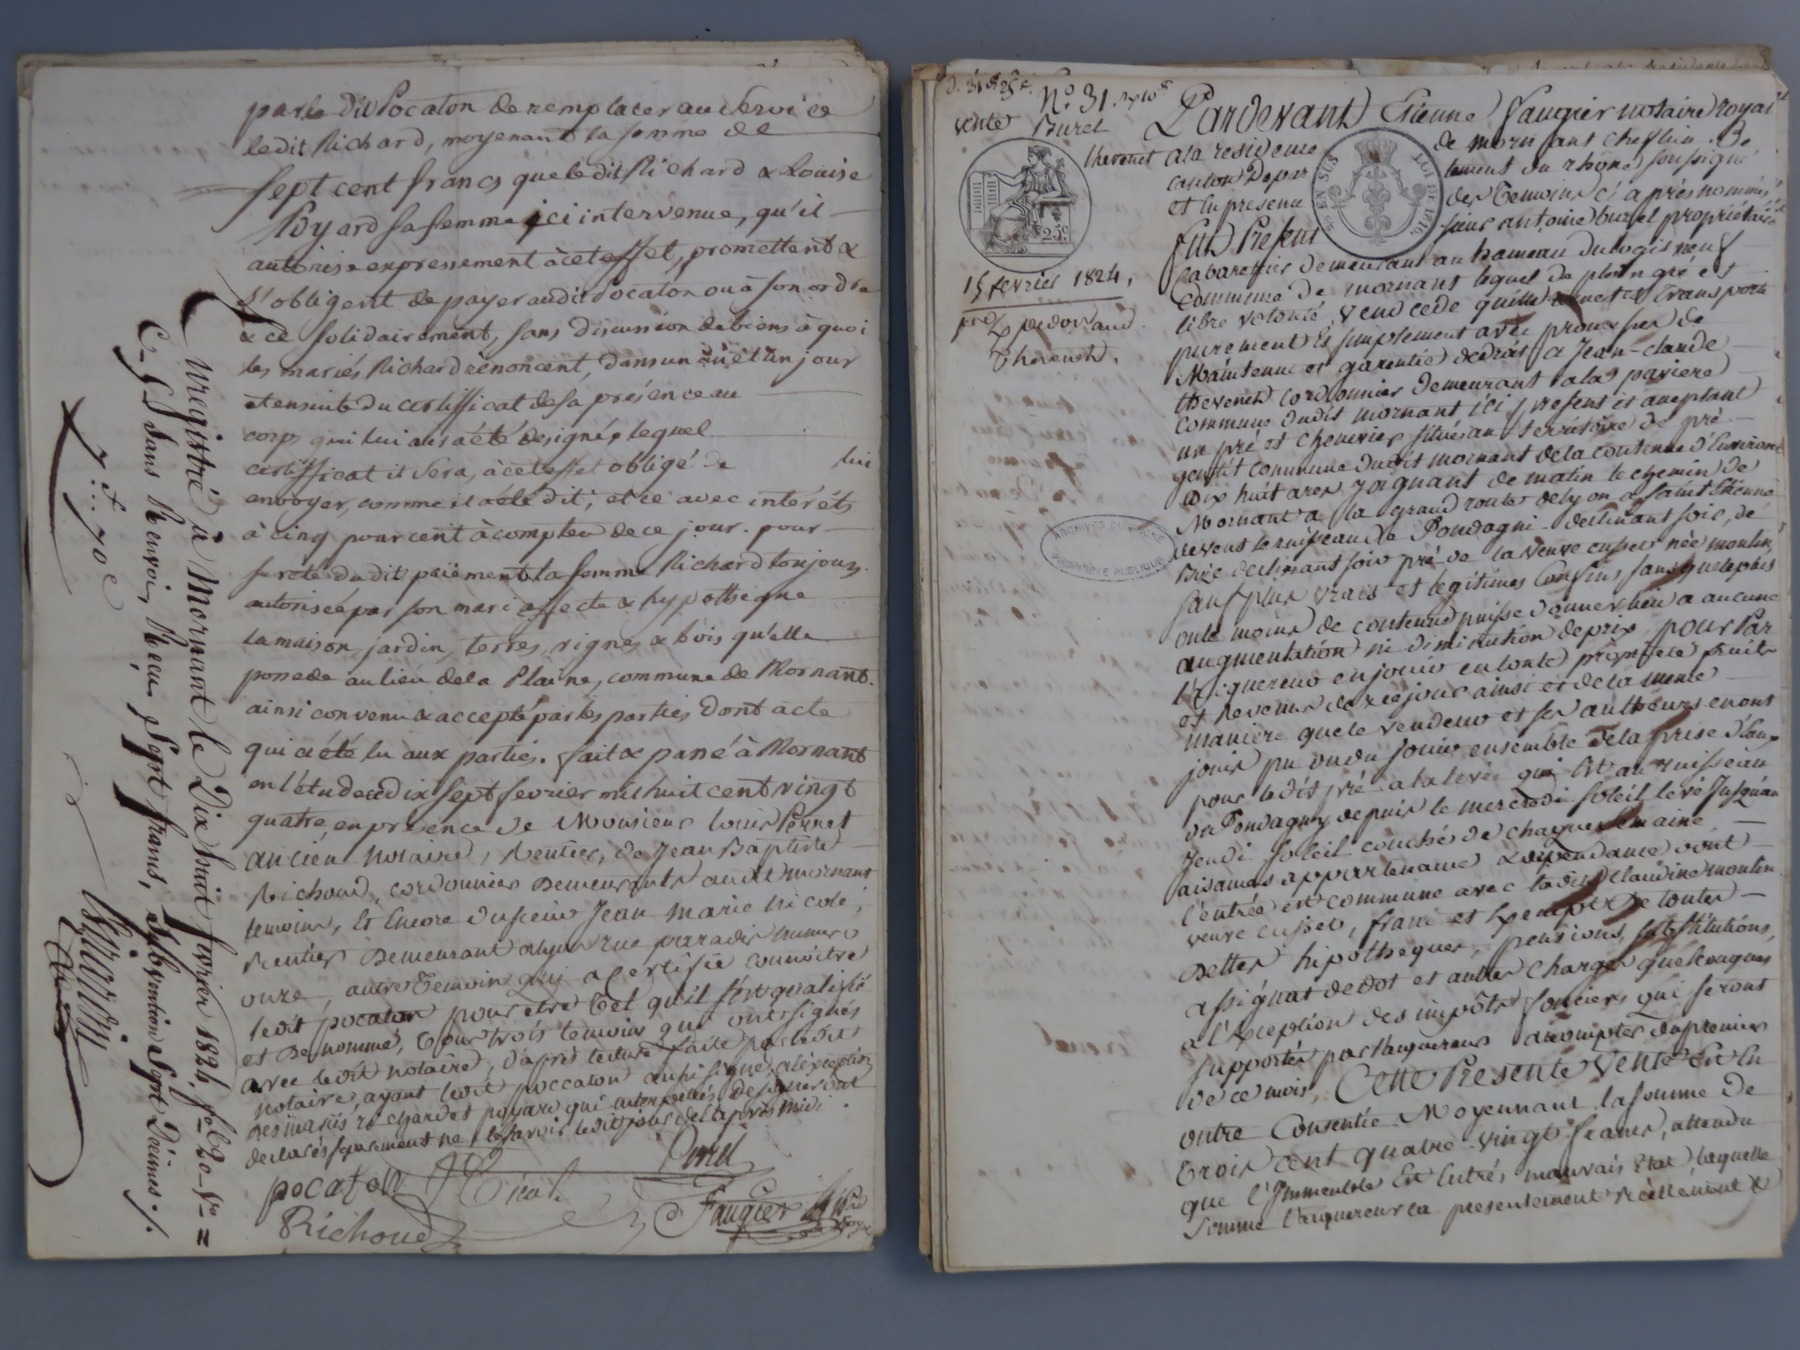 par le dit Pocaton de remplacer au service
ledit Richard, moyenant la somme de
sept cent francs que ledit Richard & Louise
Poyard sa femme ici intervenue, qu'il
autorise expressement à cet effet, promettent &
s'obligent de payer audit Pocaton ou à son ordre
& ce solidairement, sans discussion de biens à quoi
les mariés Richard renoncent, dans un an et un jour
et ensuite du certifficat de sa présence au
corps qui lui aura été designé, lequel
certifficat il sera, à cet effet obligé de lui
envoyer, comme il a été dit; et ce avec intérêts
à cinq pour cent à compter de ce jour. pour
sureté du dit paiement la femme Richard toujours
autorisée par son mari affecte & hypothèque
la maison, jardin, terres, vignes & bois qu'elle
possede au lieu de la Plaine, commune de Mornant.
ainsi convenu & accepté par les parties Dont acte
qui a été lu aux parties. fait & passé à Mornant
en l'étude ce dix sept fevrier mil huit cent vingt
quatre, en presence de Monsieur Louis Pernet
ancien notaire, Rentier, de Jean Baptiste
Richoud, cordonnier demeurants audit mornant
temoins, et encore du sieur Jean Marie Nicole,
Rentier demeurant a Lyon rue paradis numero
onze, autre temoin qui a certifié connoitre
ledit pocaton pour etre tel qu'il s'est qualifié
et denommé, tous trois temoins qui ont signés
avec ledit notaire, d'après lecture faite par ledit
notaire, ayant ledit poccaton aussi signé, a l'exception
des mariés richard et poyard qui interpellés de signer ont
declarés séparément ne le savoir ledit jour de l'après midi.
pocaton Nicole Pernet
Richoud Faugier
Enregistré à Mornant le Dix huit fevrier 1824, fol. 20 Vo
C. 5 Sans Renvoi, Reçu Sept francs, subvention Sept Décimes.
7f 70c
No. 31
Vente Buret
thevenet
25c
15 fevrier 1824.
Thevenet.
Pardevant Etienne Faugier notaire royal
a la residence de mornant chef lieu de
canton depar tement du rhone soussigné
et en presence des temoins ci après nommés
Fut Present sieur antoine buret propriétaire
Cabarettier demeurant au hameau du logis neuf
commune de mornant lequel de plein gré et
libre volonté, vend cede quitte remet et transporte
purement et simplement avec promesses de
Maintenue et garentie de droit a Jean-claude
thevenet cordonnier demeurant a la pavière
commune dudit mornant ici present et acceptant
un pré et chenevier situés au territoire de pré
gentit commune dudit mornant de la contenue d'environ
dix huit ares joignant de matin le chemin de
Mornant a la grand route de lyon a saint Etienne
de vent le ruisseau de Pondagni declinant soir, de
Bize declinant soir pré de la veuve cusset née moulin,
sauf plus vrais et legitimes Confins sans que le plus
ou le moins de contenue puisse donner lieu a aucune
augmentation ni diminution de prix, pour Par
l'Acquereur en jouir en toute propriété fruits
et Revenus de ce jour ainsi et de la meme
maniere que le vendeur et ses autheurs en ont
jouis pu ou du jouir ensemble de la prise d'Eau
pour ledit pré a la levée qui est au ruisseau
de Pondagny depuis le mercredi soleil levé jusqu'au
jeudi soleil couché de chaque semaine
aisances appartenance & dependance dont
l'entrée est commune avec ladite Claudine moulin
veuve cusset, franc et Exempt de toutes
Dettes hipothèques, pensions, substitutions,
assignat de dot et autres charges quelconques
a l'Exception des impôts fonciers qui seront
supportés par l'acquereur a compter du premier
de ce mois, Cette Presente Vente Est en
outre Consentie Moyennant la somme de
trois cent quatre-vingt francs, attendu
que l'Immeuble est en très mauvais état laquelle
somme l'acquereur a presentement réellement &
5 EN SUS LOI DE 1816
ARCHIVES DU RHONE
PROPRIÉTÉ PUBLIQUE